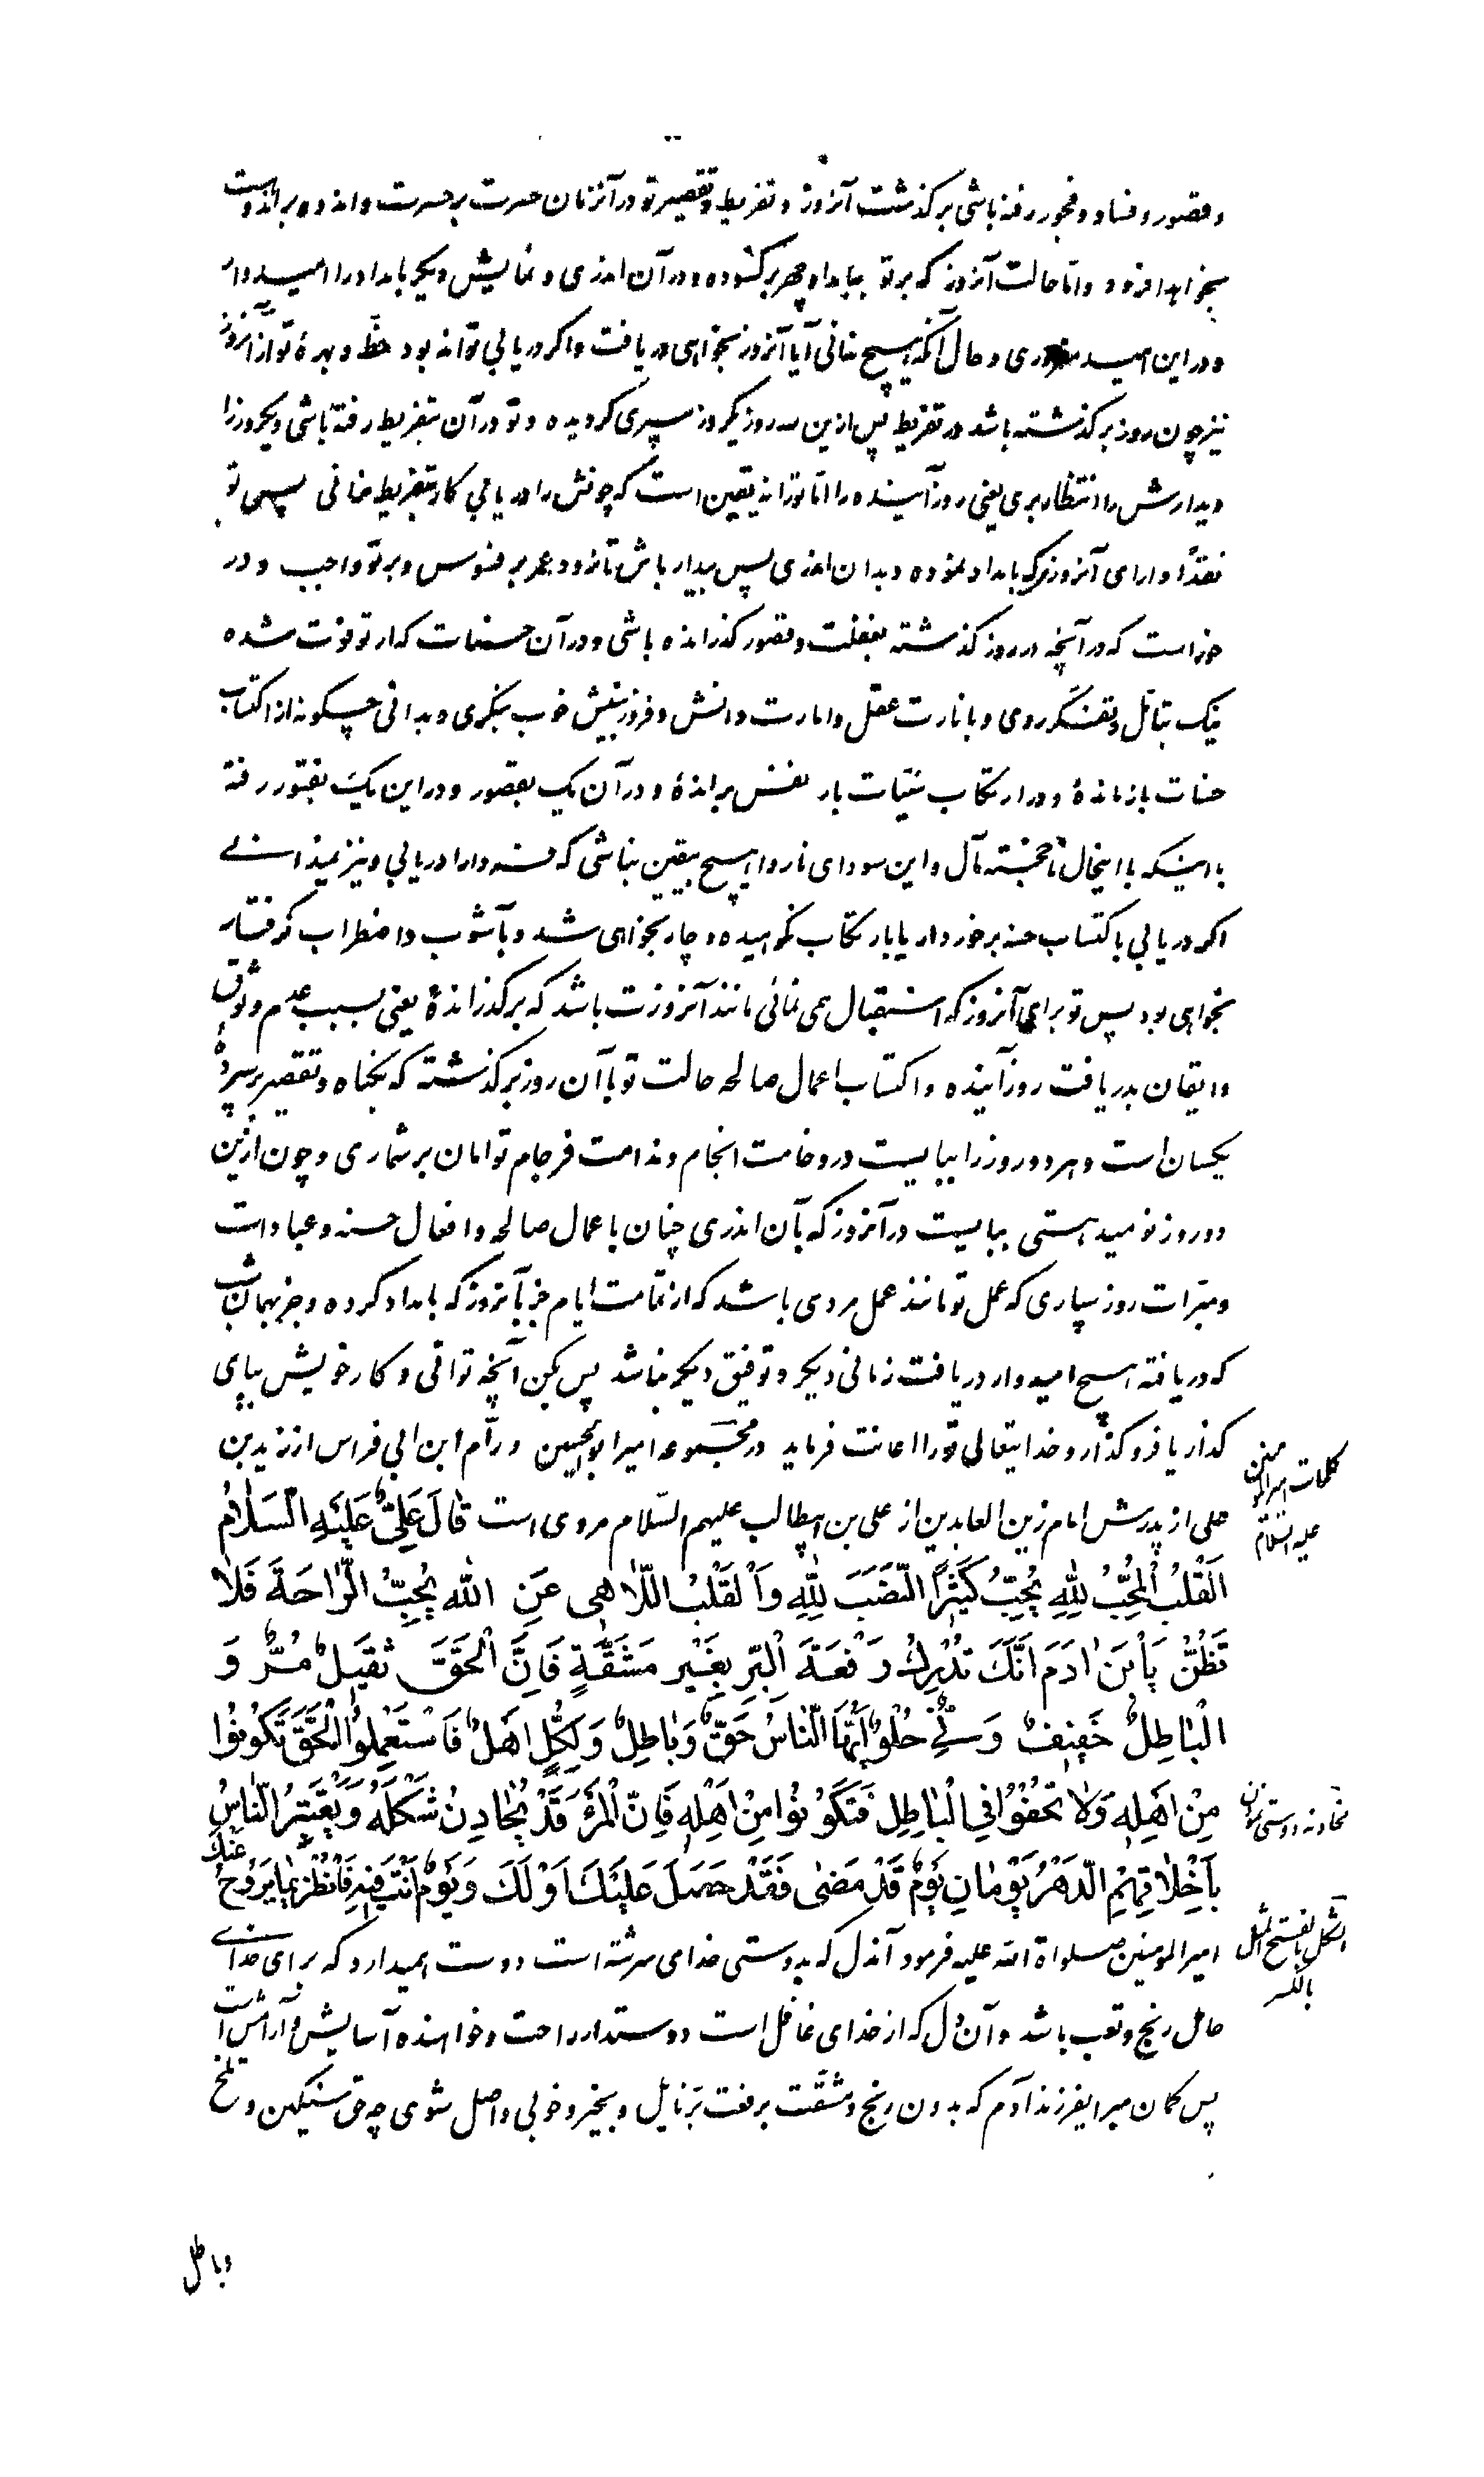 و قصور و فساد و فجور رفته باشی بر گذشت آنروز و تفریط و تقصیر تو در آنزمان حسرت بر حسرت و اندوه بر اندوهت
بخواهد افزود و امّا حالت آنروز که بر تو ببامداد چهر بر گشوده و در آن اندری و نمایش دیگر بامداد را امیدوار
و در این امید مغروری و حال آنکه هیچ ندانی آیا آنروز بخواهی دریافت و اگر دریابی تواند بود حظّ و بهرهٔ تو از آنروز
نیز چون روز بر گذشته باشد در تفریط پس ازین سه روز یکروز سپری گردیده و تو در آن بتفریط رفته باشی و یکروز را
دیدارش را انتظار بری یعنی روز آینده را امّا تو را نه یقین است که چونش را دریابی کار بتفریط نمانی پس تو
نقدًا دارای آنروزی که بامداد نموده و بدان اندری پس بیدار باش تا نرود عمر بر فسوس و بر تو واجب و در
خور است که در آنچه در روز گذشته بغفلت و قصور گذرانده باشی و در آن حسنات که از تو فوت شده
نیک بتأمّل و تفکّر روی و بانارت عقل و امارت دانش و فروز بینش خوب بنگری و بدانی چگونه از اکتساب
حسنات بازماندهٔ و در ارتکاب سیّئات بار نفس براندهٔ و در آن یک بقصور و در این یک بفتور رفته
با اینکه با اینحال ناخجسته مآل و این سودای ناروا هیچ بیقین نباشی که فردا را دریابی و نیز نمیدانی
اگر دریابی باکتساب حسنه برخوردار یا بارتکاب نکوهیده دچار بخواهی شد و بآشوب و اضطراب گرفتار
بخواهی بود پس تو برای آنروز که استقبال همی نمائی مانند آنروزت باشد که بر گذراندهٔ یعنی بسبب عدم وثوق
و ایقان بدریافت روز آینده و اکتساب اعمال صالحه حالت تو با آن روز بر گذشته که بگناه و تقصیر سپردهٔ
یکسان است و هر دو روز را ببایست در وخامت انجام و ندامت فرجام توامان بر شماری و چون ازین
دو روز نومید هستی ببایست در آنروز که بآن اندری چنان باعمال صالحه و افعال حسنه و عبادات
و مبرّات روز سپاری که عمل تو مانند عمل مردی باشد که از تمامت ایام جز بآنروز که بامداد کرده و جز بهمان شب
که دریافته هیچ امیدوار دریافت زمانی دیگر و توفیق دیگر نباشد پس بکن آنچه توانی و کار خویش بپای
گذار یا فرو گذار و خدایتعالی تو را اعانت فرماید در مجموعه امیر ابو الحسین ورّام ابن ابی فراس از زید بن
علی از پدرش امام زین العابدین از علی بن ابیطالب علیهم السّلام مروی است قٰالَ عَلِیٌّ عَلَیْهِ السَّلٰامُ
اَلْقَلْبُ الْمُحِبُّ لِلّٰهِ یُحِبُّ کَثیرًا النَّصَبَ لِلّٰهِ وَاَلْقَلْبُ اللّٰاهی عَنِ اللّٰه یُحِبُّ الرّٰاحَةَ فَلٰا
تَظُنَّ یَا بْنَ اٰدَمَ اَنَّکَ تُدْرِكُ رَفْعَةَ الْبِرِّ بِغَیْرِ مَشَقَّةٍ فَاِنَّ الْحَقَّ ثَقیلٌ مُرٌّ وَ
الْبٰاطِلَ خَفیفٌ وَ حُلْوٌ اَیُّهَا النّٰاسُ حَقٌّ وَبٰاطِلٌ وَلِکُلٍّ اَهْلٌ فَاسْتَعْمِلُوا الْحَقَّ تَکُونُوا
مِنْ اَهْلِهِ وَلٰا تَخِفُّوا فِی الْبٰاطِلِ فَتَکُونُوا مِنْ اَهْلِهِ فَاِنَّ الْمَرْءَ قَدْ یُخٰادِنُ شَکْلَهُ وَیُعْتَبَرُ النّٰاسُ
بِاَخْلٰاقِهِمْ الدَّهْرُ یَوْمٰانِ یَوْمٌ قَدْ مَضٰی فَقَدْ حَصَلَ عَلَیْکَ اَوْ لَکَ وَیَوْمٌ اَنْتَ فیهِ فَانْظُرْ بِمٰا یَرُوحُ عَنْكَ
امیر المومنین صلواة اللّه علیه فرمود آندل که بدوستی خدای سرشته است دوست همیدارد که برای خدای
حامل رنج و تعب باشد و آن دل که از خدای غافل است دوستدار راحت و خواهنده آسایش و آرامش است
پس گمان مبر ایفرزند آدم که بدون رنج و مشقّت برفعت برّ نایل و بخیر و خوبی واصل شوی چه حق سنگین و تلخ
کلمات امیرالمؤمنین
علیه السّلام
مخادنه دوستی کردن
الشکل بالفتح المثل
بالکسر
و باطل